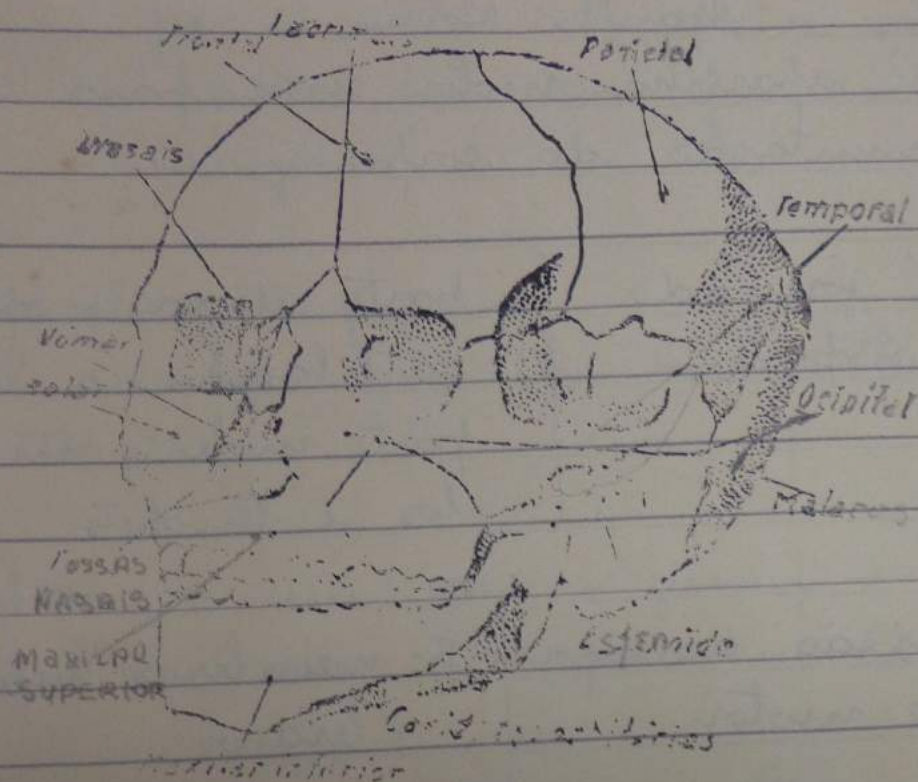 Frontal Lacrimais
Parietal
Nasais
Temporal
Vomer
Ocipital
Malares
Fossas
Nasais
Maxilar
Superior
Esfenoide
Maxilar inferior